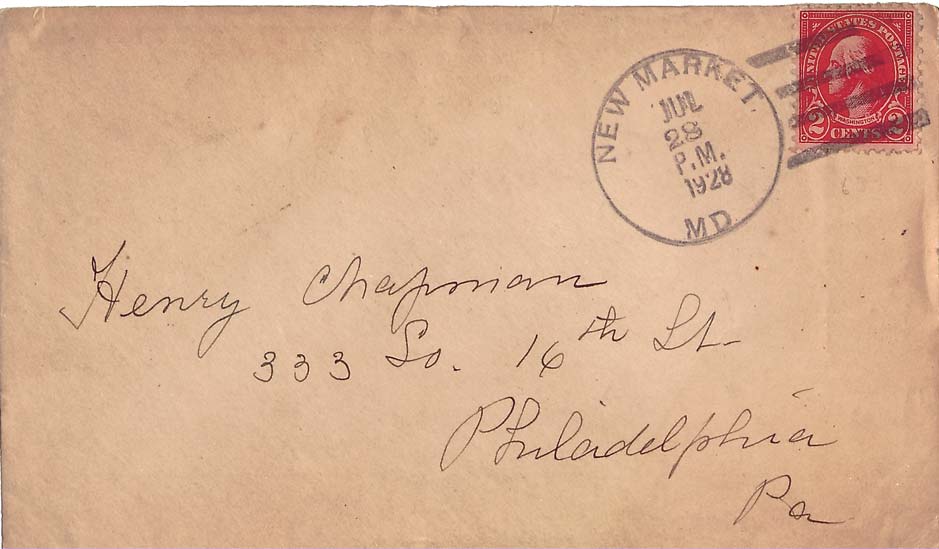 UNITED STATES POSTAGE
WASHINGTON
2 CENTS 2
NEW MARKET,
JUL
28
P.M.
1928
MD.
Henry Chapman
333 So. 16th St.
Philadelphia
Pa